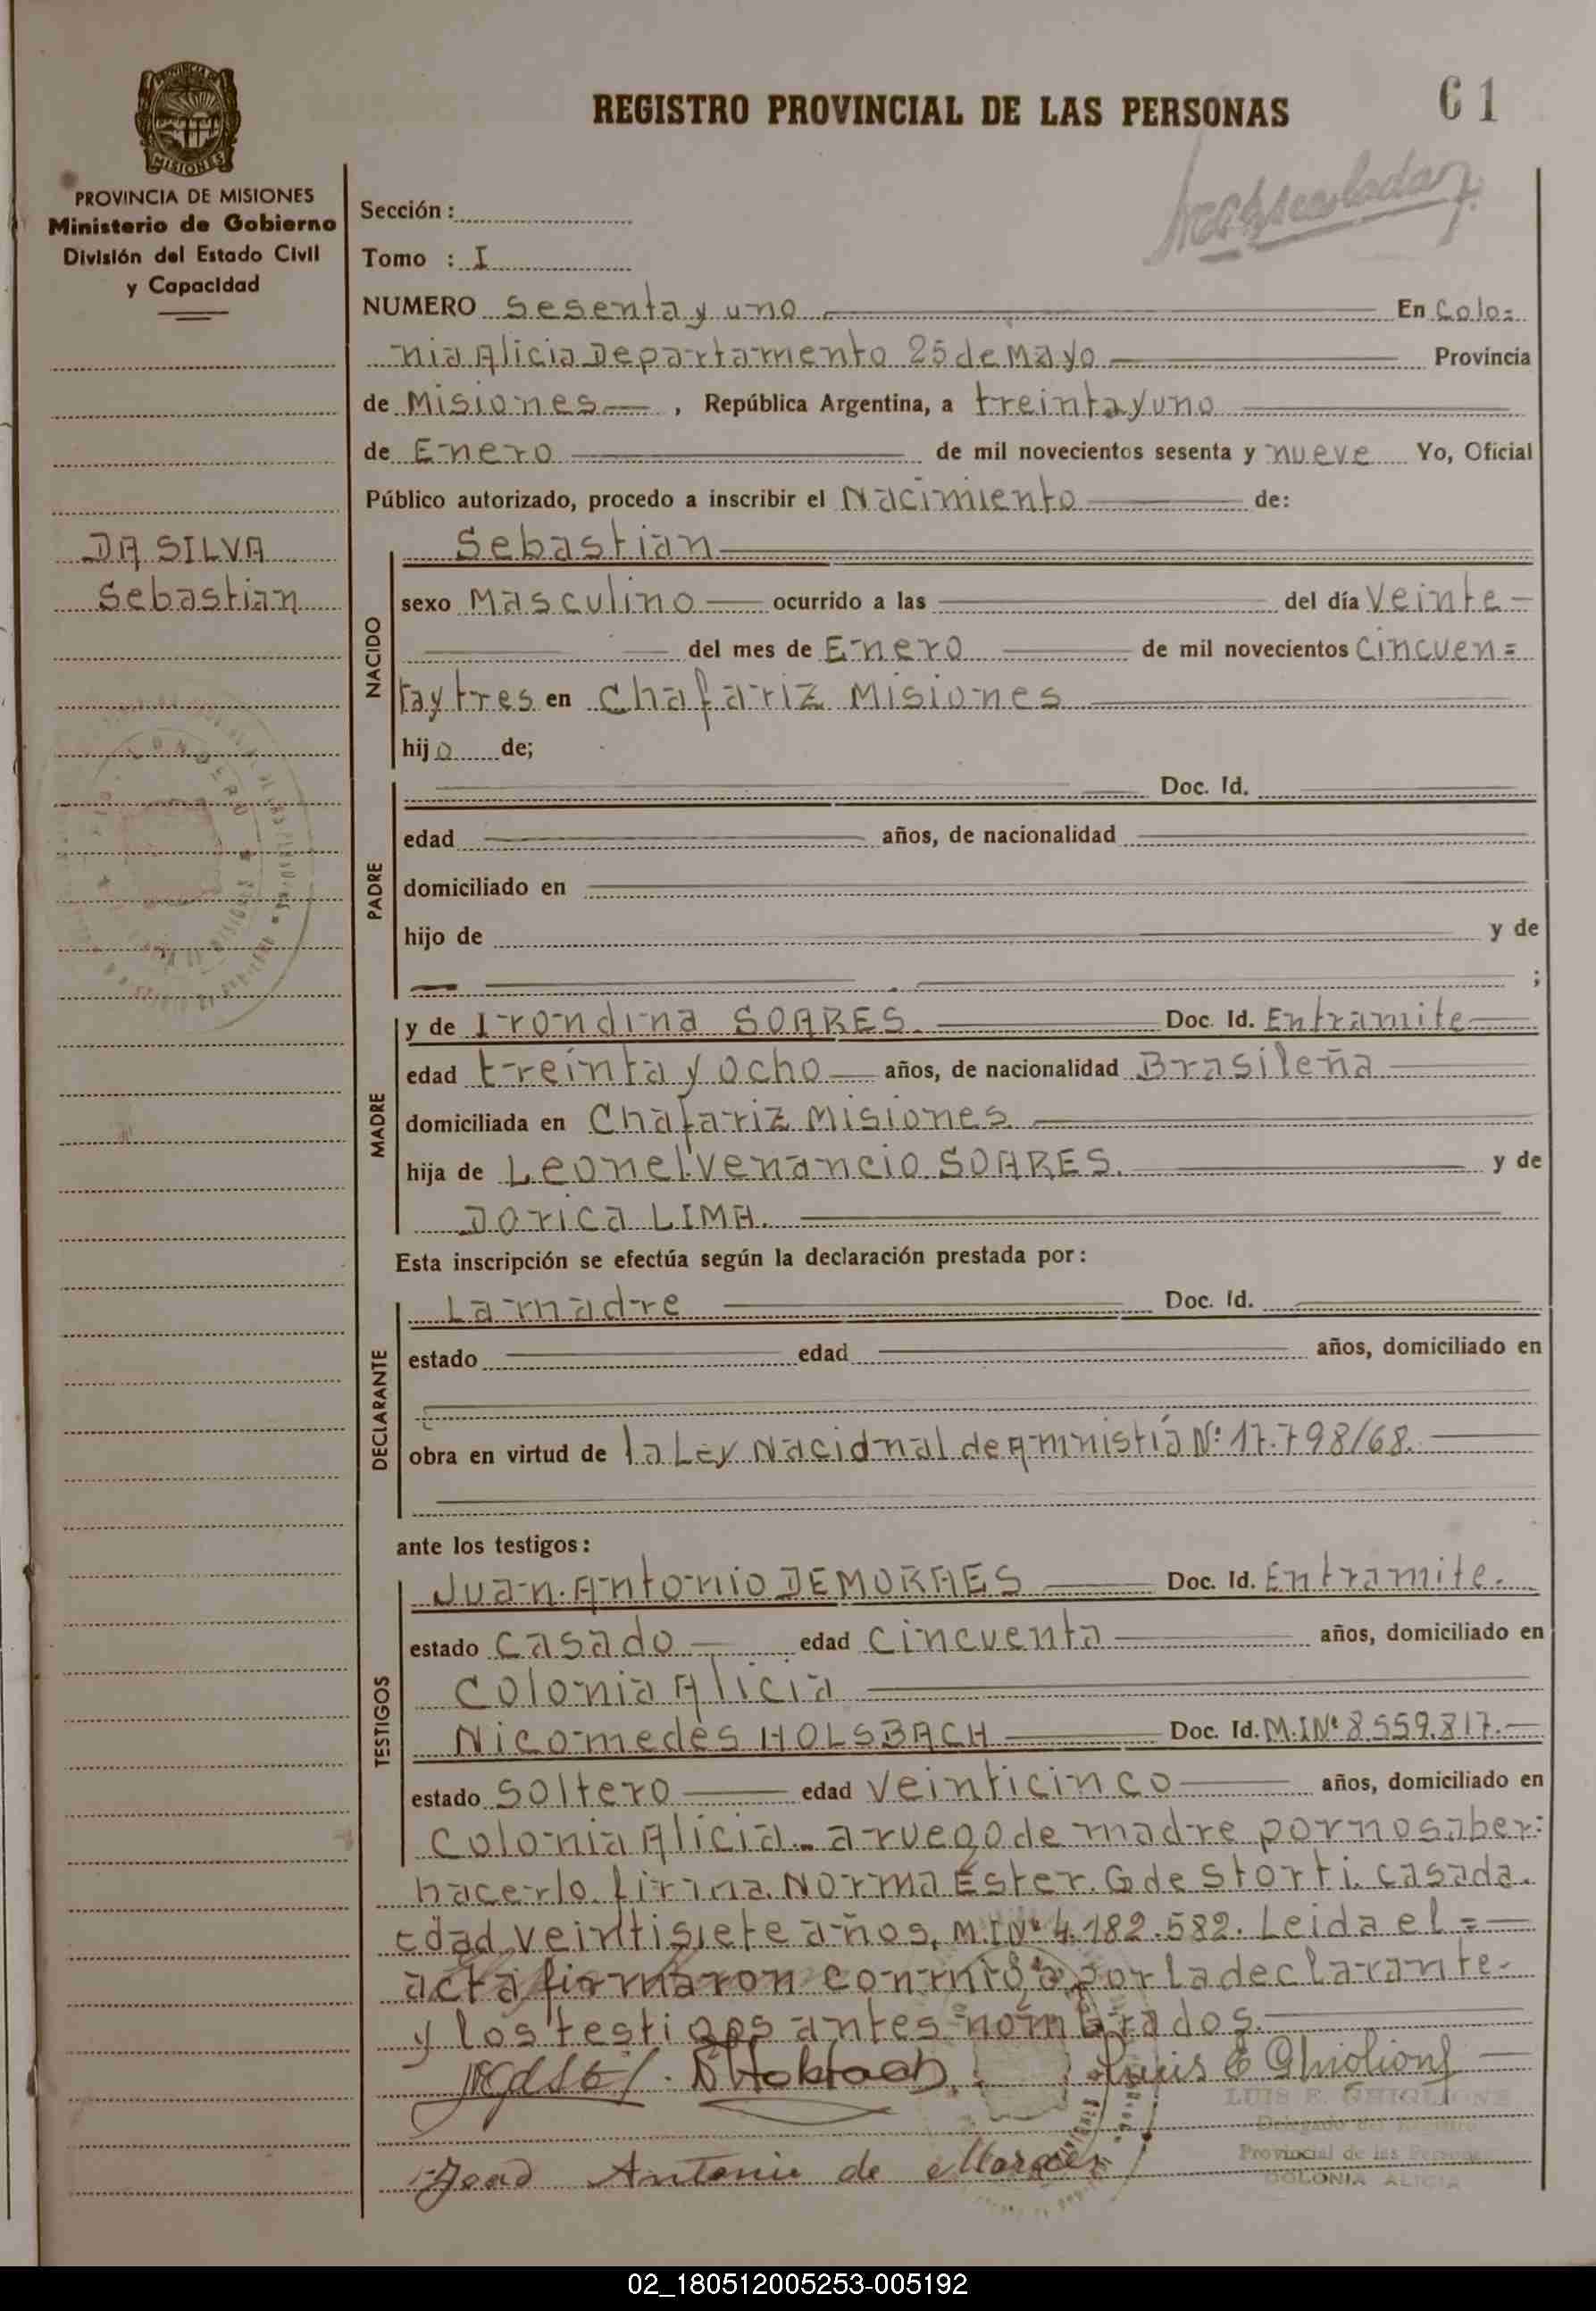 61
REGISTRO PROVINCIAL DE LAS PERSONAS
PROVINCIA DE
MISIONES
PROVINCIA DE MISIONES
Ministerio de Gobierno
División del Estado Civil
y Capacidad
DA SILVA
Sebastian
Sección :
Tomo : I
NUMERO Sesenta y uno En Colo=
nia Alicia Departamento 25 de Mayo Provincia
de Misiones , República Argentina, a treinta y uno
de Enero de mil novecientos sesenta y nueve Yo, Oficial
Público autorizado, procedo a inscribir el Nacimiento de:
NACIDO
Sebastian
sexo Masculino ocurrido a las del día Veinte
del mes de Enero de mil novecientos Cincuen=
ta y tres en Chafariz Misiones
hijo de;
PADRE
Doc. Id.
edad años, de nacionalidad
domiciliado en
hijo de y de
;
MADRE
y de Irondina SOARES. Doc. Id. En tramite
edad treinta y ocho años, de nacionalidad Brasileña
domiciliada en Chafariz Misiones
hija de Leonel Venancio SOARES. y de
Dorica LIMA.
Esta inscripción se efectúa según la declaración prestada por:
DECLARANTE
La madre Doc. Id.
estado edad años, domiciliado en
obra en virtud de la Ley Nacional de Amnistía Nº 17.798/68.
ante los testigos:
TESTIGOS
Juan Antonio DE MORAES Doc. Id. En tramite.
estado Casado edad Cincuenta años, domiciliado en
Colonia Alicia
Nicomedes HOLSBACH Doc. Id. M.I Nº 8.559.817.
estado Soltero edad Veinticinco años, domiciliado en
Colonia Alicia. a ruego de madre por no saber:
hacerlo firma Norma Ester G de Storti. casada.
edad veintisiete años, M.I Nº 4.182.582. Leida el =
acta firmaron conmigo por la declarante
y los testigos antes nombrados.
Luis E Ghiglione
LUIS E. GHIGLIONE
Delegado del Registro
Provincial de las Personas
COLONIA ALICIA
Antonio de Moraes
02_180512005253-005192